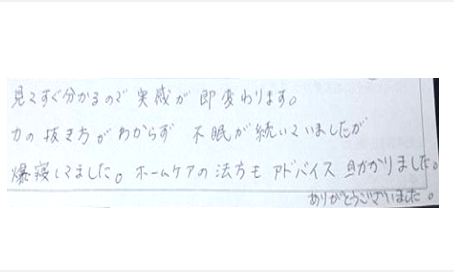 見てすぐ分かるので 実感が 即変わります。
力の抜き方がわからず 不眠が続いていましたが
爆寝してました。ホームケアの法方も アドバイス 助かりました。
ありがとうございました。